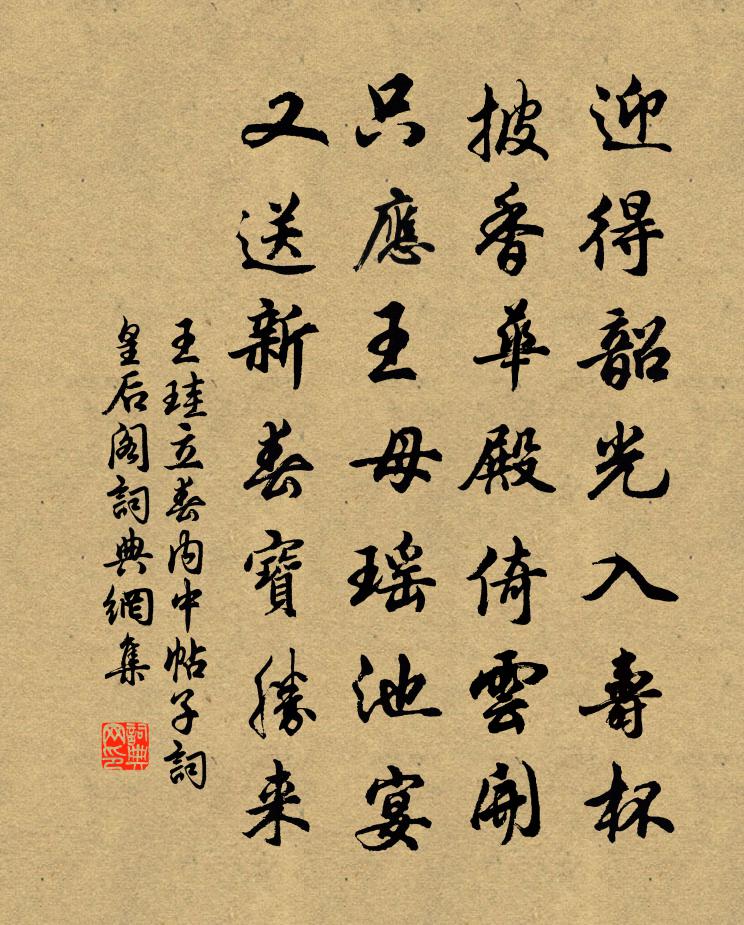 迎得韶光入壽杯
披香華殿倚雲開
只應王母瑤池宴
又送新春寶勝来
王珪立春内中帖子詞
皇后阁詞典網集
詞典
网印